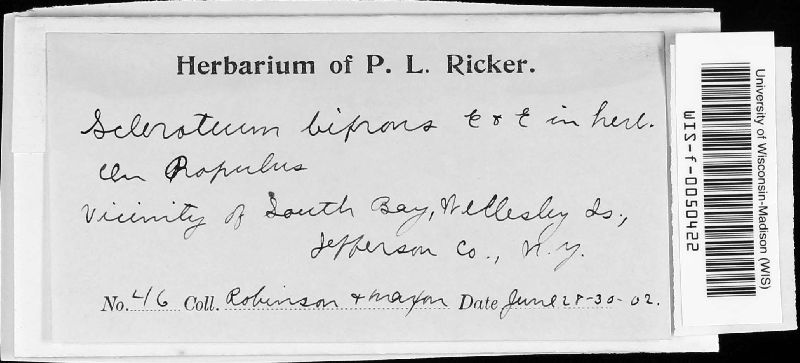 Herbarium of P. L. Ricker.
Sclerotium bifrons E & E in herb.
On Populus
Vicinity of South Bay, Wellesley Is.,
Jefferson Co., N.Y.
No. 46 Coll. Robinson & Maxon Date June 28-30-02.
University of Wisconsin-Madison (WIS)
WIS-f-0050422